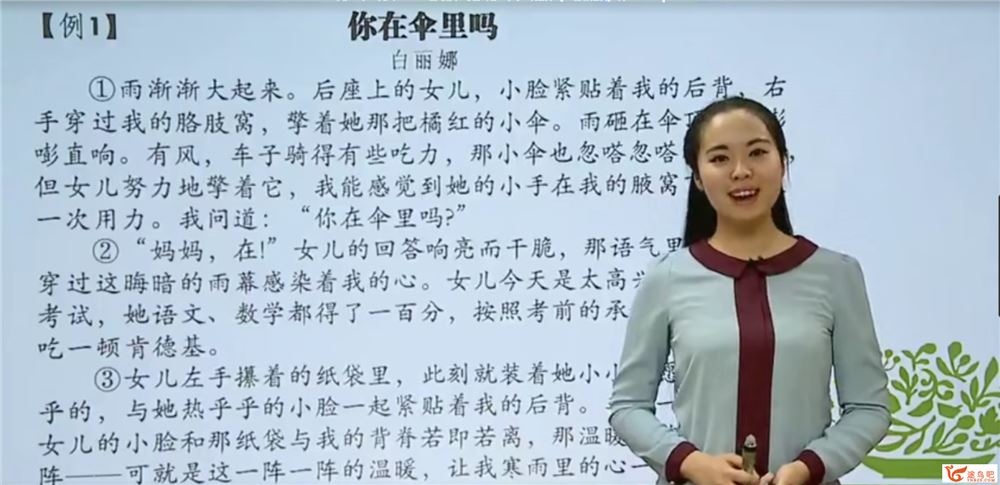 【例1】
你在伞里吗
白丽娜
①雨渐渐大起来。后座上的女儿，小脸紧贴着我的后背，右
手穿过我的胳肢窝，擎着她那把橘红的小伞。雨砸在伞
嘭直响。有风，车子骑得有些吃力，那小伞也忽嗒忽嗒
但女儿努力地擎着它，我能感觉到她的小手在我的腋窝
一次用力。我问道：“你在伞里吗?”
②“妈妈，在!”女儿的回答响亮而干脆，那语气里
穿过这晦暗的雨幕感染着我的心。女儿今天是太高
考试，她语文、数学都得了一百分，按照考前的承
吃一顿肯德基。
③女儿左手攥着的纸袋里，此刻就装着她小小
乎的，与她热乎乎的小脸一起紧贴着我的后背。
女儿的小脸和那纸袋与我的背脊若即若离，那温暖
阵——可就是这一阵一阵的温暖，让我寒雨里的心一
途鸟吧